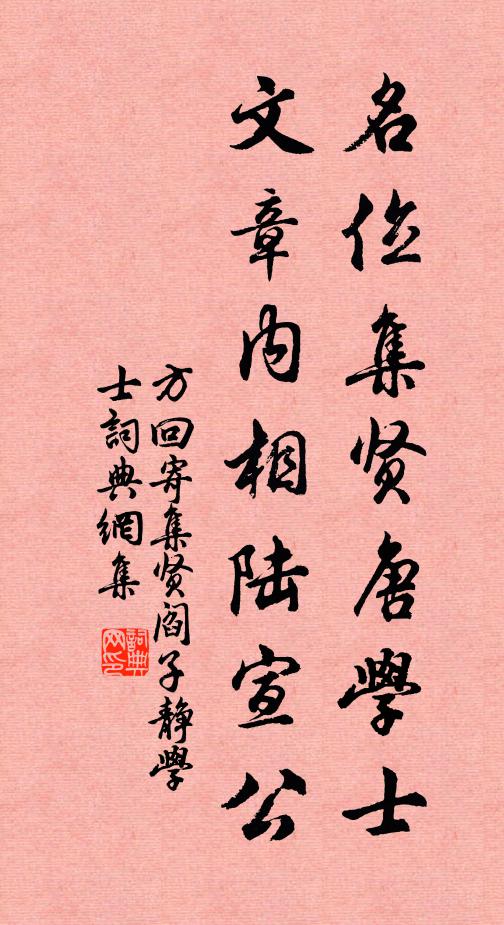 名位集贤唐學士
文章内相陆宣公
方回寄集贤阎子静學
士詞典網集
詞典网印